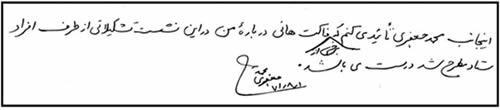 اینجانب محمد جعفری تأیید می کنم که فاکت هائی درباره من در این نشست تشکیلاتی از طرف افراد
برخی از
ستاد مطرح شد درست می باشد.
محمد
جعفری
۷۱/۸/۱